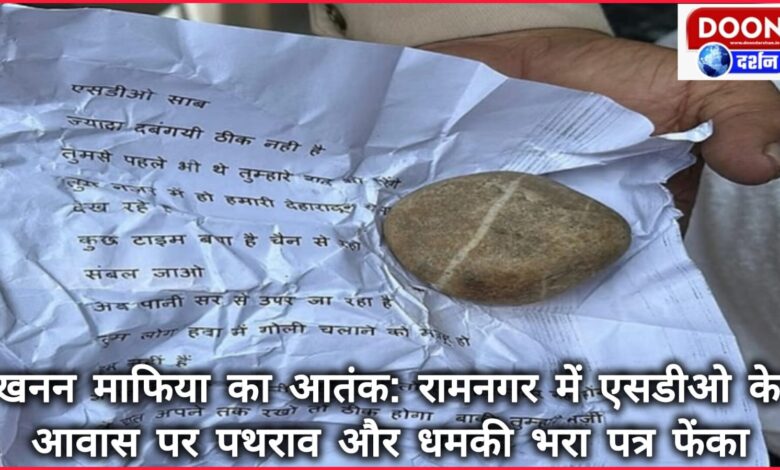 DOON
www.doondarshan.in
दर्शन
एसडीओ साब
ज्यादा दबंगयी ठीक नही है
तुमसे पहले भी थे तुम्हारे
में हो हमारी देहरादून
देख रहे
कुछ टाइम बचा है चैन से
संबल जाओ
अब पानी सर से उपर जा रहा है
तुम लोग हवा में गोली चलाने को हो
नहीं हैं
अपने तक रखो तो ठीक होगा
खनन माफिया का आतंक: रामनगर में एसडीओ के
आवास पर पथराव और धमकी भरा पत्र फेंका